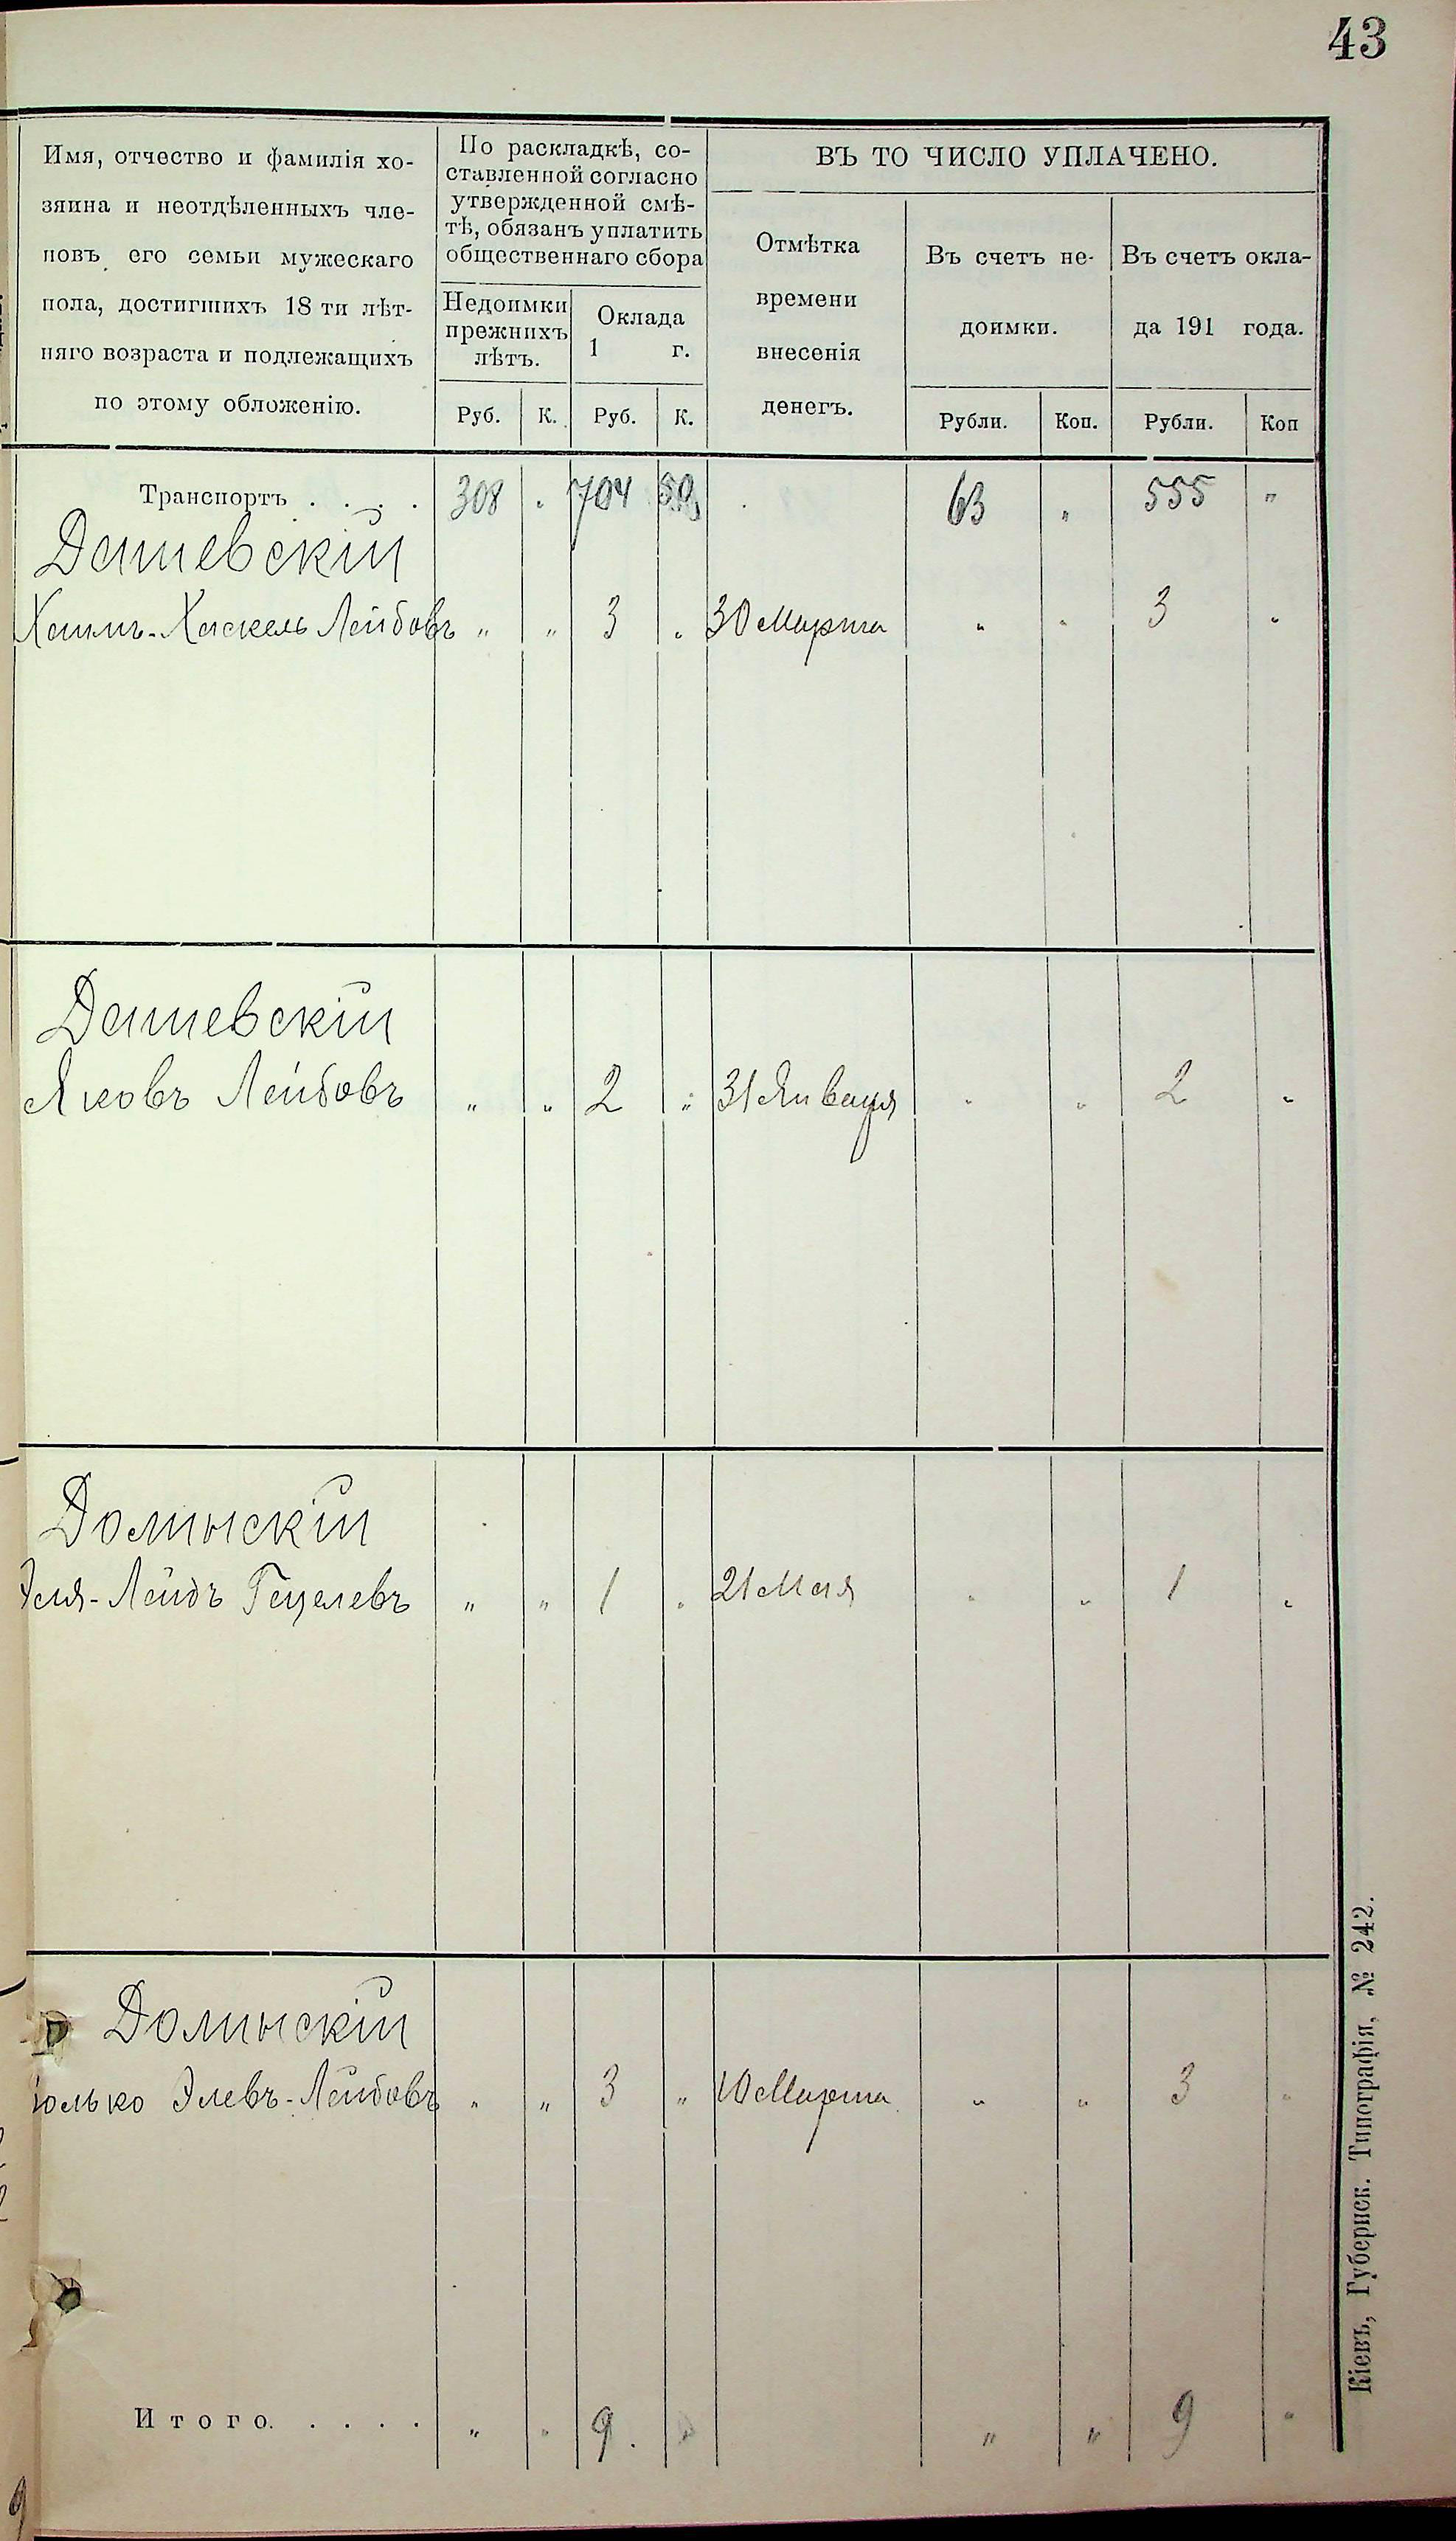 43
Имя, отчество и фамилія хо-
зяина и неотдѣленныхъ чле-
новъ его семьи мужескаго
пола, достигшихъ 18 ти лѣт-
няго возраста и подлежащихъ
по этому обложенію.
По раскладкѣ, со-
ставленной согласно
утвержденной смѣ-
тѣ, обязанъ уплатить
общественнаго сбора
Недоимки
прежнихъ
лѣтъ.
Оклада
1 г.
Руб. К. Руб. К.
ВЪ ТО ЧИСЛО УПЛАЧЕНО.
Отмѣтка
времени
внесенія
денегъ.
Въ счетъ не-
доимки.
Въ счетъ окла-
да 191 года.
Рубли. Коп. Рубли. Коп
Транспортъ . . . . 308 " 704 50 63 " 555 "
Дашевскій
Хаимъ-Хаскель Лейбовъ " " 3 " 30 Марта " " 3 "
Дашевскій
Яковъ Лейбовъ " " 2 " 31 Января " " 2 "
Долинскій
Эля-Лейбъ Гецелевъ " " 1 " 21 Мая " " 1 "
Долинскій
Элевъ-Лейбовъ " " 3 " 10 Марта " " 3 "
Итого. . . . . " " 9 . " " " 9 "
Кіевъ, Губернск. Типографія, № 242.